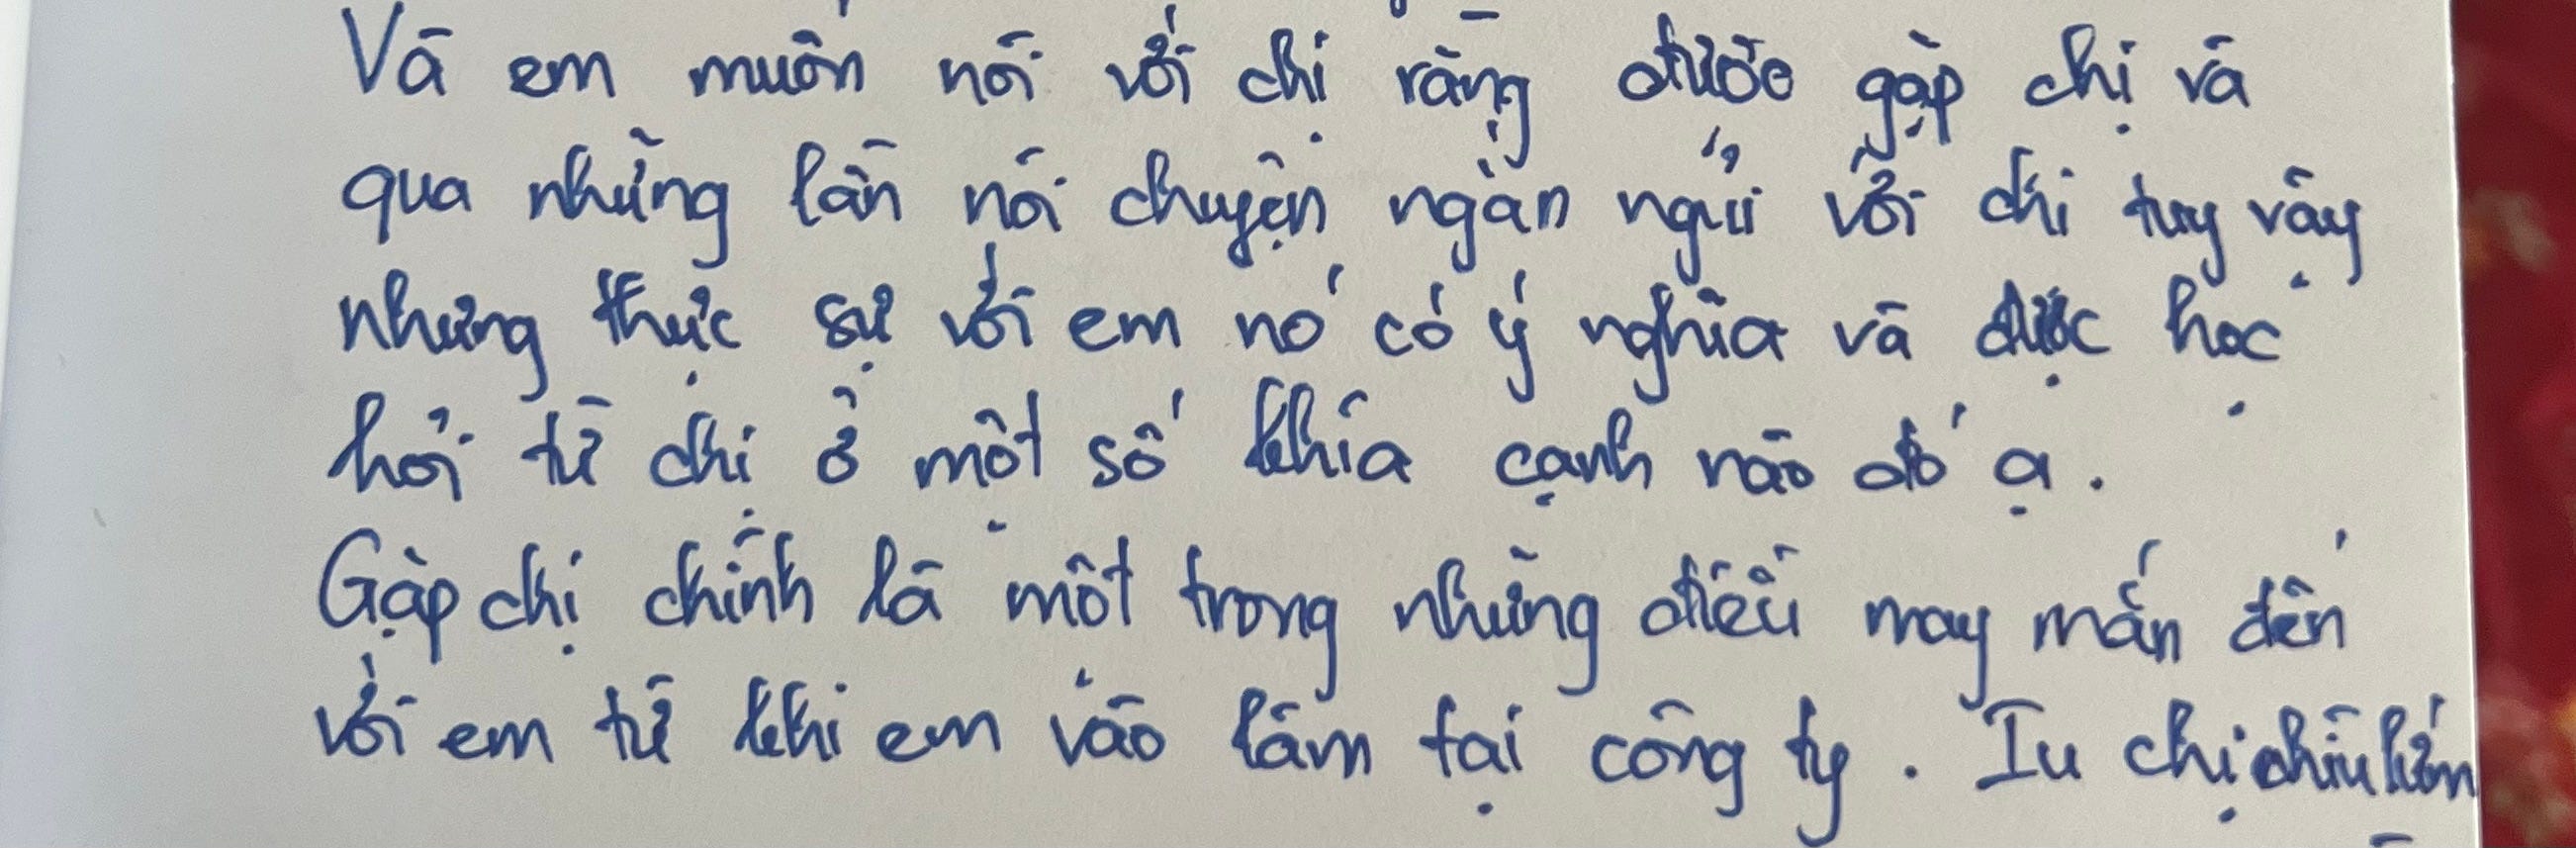 Và em muốn nói với chị rằng được gặp chị và
qua những lần nói chuyện ngắn ngủi với chị tuy vậy
nhưng thực sự với em nó có ý nghĩa và được học
hỏi từ chị ở một số khía cạnh nào đó ạ.
Gặp chị chính là một trong những điều may mắn đến
với em từ khi em vào làm tại công ty. Iu chị